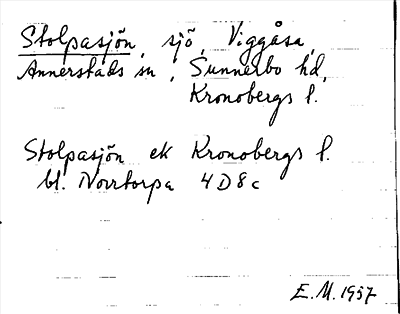 Stolpasjön, sjö, Viggåsa,
Annerstads sn, Sunnerbo hd,
Kronobergs l.
Stolpasjön ek Kronobergs l.
bl. Norrtorpa 4 D 8 c
E.M. 1957